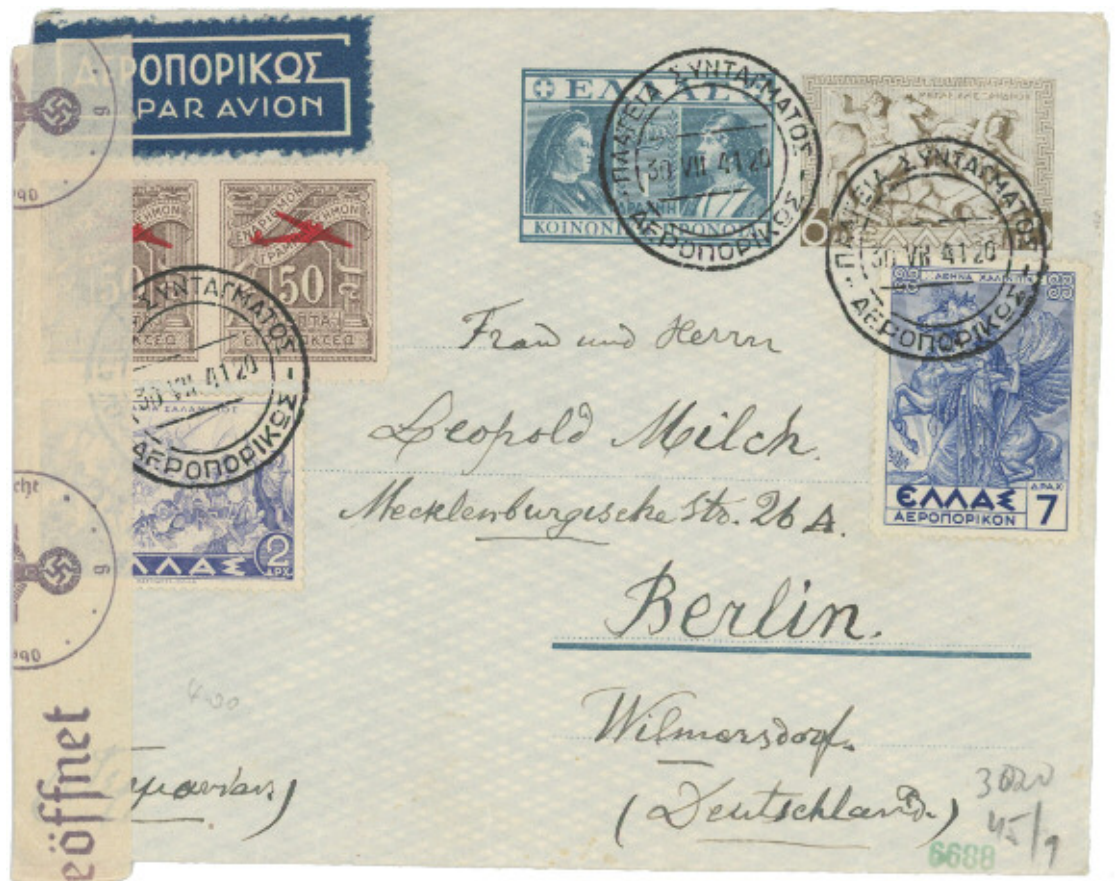 ΑΕΡΟΠΟΡΙΚΩΣ
PAR AVION
g
990
ΕΛΛΑΣ
ΚΟΙΝΩΝΙΚΗ ΠΡΟΝΟΙΑ
ΠΛΑΤΕΙΑ ΣΥΝΤΑΓΜΑΤΟΣ
30 VII 41 20
ΑΕΡΟΠΟΡΙΚΩΣ
ΠΛΑΤΕΙΑ ΣΥΝΤΑΓΜΑΤΟΣ
30 VII 41 20
ΑΕΡΟΠΟΡΙΚΩΣ
ΕΝΑΡΙΘΜΟΝ
ΓΡΑΜΜΑΤΟΣΗΜΟΝ
50
50
ΣΥΝΤΑΓΜΑΤΟΣ
30 VII 41 20
ΑΕΡΟΠΟΡΙΚΩΣ
ΛΛΑΣ 2
ΔΡΧ
ΕΛΛΑΣ
ΑΕΡΟΠΟΡΙΚΟΝ
ΔΡΑΧ
7
Frau und Herrn
Leopold Milch.
Mecklenburgische Str. 26 A.
Berlin.
Wilmersdorf.
(Deutschland.)
μανίαν)
cht
g
990
eöffnet
4.00
3020
45/9
6688